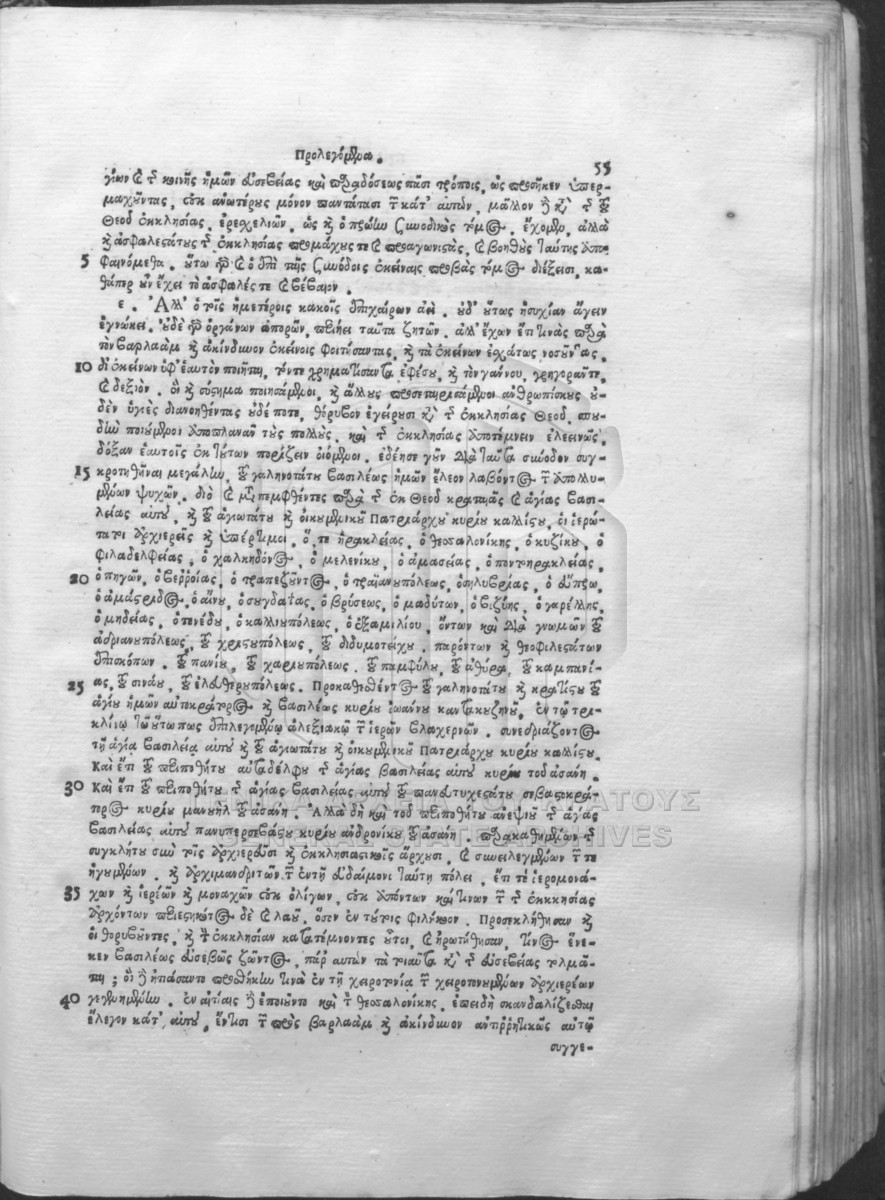 Προλεγόμενα. 55
γίων καὶ τῆς κοινῆς ἡμῶν εὐσεβείας καὶ παραδόσεως πᾶσι τρόποις, ὡς προσῆκεν ὑπερ-
μαχοῦντας, οὐκ ἀνωτέρους μόνον παντάπασι τῶν κατ' αὐτῶν, μᾶλλον δὲ κατὰ τῆς τοῦ
Θεοῦ ἐκκλησίας, ἐρεσχελιῶν, ὡς καὶ ὁ πρώην συνοδικὸς τόμος, ἔχομεν, ἀλλὰ
καὶ ἀσφαλεστάτους τῆς ἐκκλησίας προμάχους τε καὶ προαγωνιστὰς, καὶ βοηθοὺς ταύτης ἀπο-
5 φαινόμεθα. οὕτω γὰρ καὶ ὁ ἐπὶ ταῖς συνόδοις ἐκείναις προβὰς τόμος διέξεισι, κα-
θάπερ οὖν ἔχει τὸ ἀσφαλές τε καὶ βέβαιον.
ε. Ἀλλ' ὁ τοῖς ἡμετέροις κακοῖς ἐπιχαίρων ἀεὶ, οὐδ' οὕτως ἡσυχίαν ἄγειν
ἐγνώκει. οὐδὲ γὰρ ὀργάνων ἀπορῶν, ποιήει ταῦτα ζητῶν. ἀλλ' ἔχων ἔτι τινὰς παρὰ
τὸν βαρλαὰμ καὶ ἀκίνδυνον ἐκείνοις φοιτήσαντας, καὶ τὰ ἐκείνων ἐσχάτως νοσοῦντας,
10 δι' ἐκείνων ὑφ' ἑαυτὸν ποιῆται, τόν τε χρηματίσαντα ἐφέσου, καὶ τὸν γάνου, γρηγορᾶν τε,
καὶ δεξιὸν. οἳ καὶ σύστημα ποιησάμενοι, καὶ ἄλλους προσεταιρισάμενοι ἀνθρωπίσκους οὐ-
δὲν ὑγιὲς διανοηθέντας οὐδέ ποτε, θόρυβον ἐγείρουσι κατὰ τῆς ἐκκλησίας Θεοῦ, σπου-
δὴν ποιούμενοι ἀποπλανᾶν τοὺς πολλοὺς, καὶ τῆς ἐκκλησίας ἀποτέμνειν ἐλεεινῶς,
δόξαν ἑαυτοῖς ἐκ τούτων πορίζειν οἰόμενοι. ἐδέησε γοῦν διὰ ταῦτα σύνοδον συγ-
15 κροτηθῆναι μεγάλην, τοῦ γαληνοτάτου βασιλέως ἡμῶν ἔλεον λαβόντος τῶν ἀπολλυ-
μένων ψυχῶν. διὸ καὶ μεταπεμφθέντες παρὰ τῆς ἐκ Θεοῦ κραταιᾶς καὶ ἁγίας βασι-
λείας αὐτοῦ, καὶ τοῦ ἁγιωτάτου καὶ οἰκουμενικοῦ Πατριάρχου κυρίου καλλίστου, οἱ ἱερώ-
τατοι ἀρχιερεῖς καὶ ὑπέρτιμοι, ὅ, τε ἡρακλείας, ὁ θεσσαλονίκης, ὁ κυζίκου, ὁ
φιλαδελφείας, ὁ χαλκηδόνος, ὁ μελενίκου, ὁ ἀμασείας, ὁ ποντηρακλείας,
20 ὁ πηγῶν, ὁ βεῤῥοίας, ὁ τραπεζοῦντος, ὁ τραϊανουπόλεως, ὁ σηλυβρίας, ὁ εὐπρω,
ὁ ἀμάστριδος, ὁ αἴνου, ὁ σουγδαίας, ὁ βρύσεως, ὁ μαδύτων, ὁ βιζύης, ὁ γαρέλλης,
ὁ μηδείας, ὁ τενέδου, ὁ καλλιουπόλεως, ὁ ἐξαμιλίου, ὄντων καὶ διὰ γνωμῶν τοῦ
ἀδριανουπόλεως, τοῦ χριστουπόλεως, τοῦ διδυμοτείχου. παρόντων καὶ θεοφιλεστάτων
ἐπισκόπων. τοῦ πανίου, τοῦ χαριουπόλεως, τοῦ παμφύλου, τοῦ ἀθύρα, τοῦ καμπανί-
25 ας, τοῦ σινάου, τοῦ ἐλευθερουπόλεως. Προκαθεσθέντος τοῦ γαληνοτάτου καὶ κρατίστου τοῦ
ἁγίου ἡμῶν αὐτοκράτορος καὶ βασιλέως κυρίου ἰωάννου καντακουζηνοῦ, ἐν τῷ τρι-
κλίνῳ τῷ οὕτωπως ἐπιλεγομένῳ ἀλεξιακῷ τῶν ἱερῶν βλαχερνῶν. συνεδριάζοντος
τῇ ἁγίᾳ βασιλείᾳ αὐτοῦ καὶ τοῦ ἁγιωτάτου καὶ οἰκουμενικοῦ Πατριάρχου κυρίου καλλίστου,
Καὶ ἔτι τοῦ περιποθήτου αὐταδέλφου τῆς ἁγίας βασιλείας αὐτοῦ κυρίου τοῦ ἀσάνη.
30 Καὶ ἔτι τοῦ περιποθήτου τῆς ἁγίας βασιλείας αὐτοῦ τοῦ πανευτυχεστάτου σεβαστοκρά-
τορος κυρίου μανουὴλ τοῦ ἀσάνη. Ἀλλὰ δὴ καὶ τοῦ περιποθήτου ἀνεψιοῦ τῆς ἁγίας
βασιλείας αὐτοῦ πανυπερσεβάστου κυρίου ἀνδρονίκου τοῦ ἀσάνη. παρακαθημένων τῆς
συγκλήτου σὺν τοῖς ἀρχιερεῦσι καὶ ἐκκλησιαστικοῖς ἄρχουσι, καὶ συνειλεγμένων τῶν τε
ἡγουμένων, καὶ ἀρχιμανδριτῶν τῶν ἐν τῇ εὐδαίμονι ταύτῃ πόλει, ἔτι τὲ ἱερομονά-
35 χων καὶ ἱερέων καὶ μοναχῶν οὐκ ὀλίγων, οὐκ ἀπόντων καί τινων τῶν τῆς ἐκκκησίας
ἀρχόντων περιεστηκότος δὲ καὶ λαοῦ, ὅσον ἐν τούτοις φιλήκοον. Προσεκλήθησαν καὶ
οἱ θορυβοῦντες, καὶ τὴν ἐκκλησίαν κατατέμνοντες οὗτοι, καὶ ἠρωτήθησαν, τίνος ἕνε-
κεν βασιλέως εὐσεβῶς ζῶντος, παρ' αὐτῶν τὰ τοιαῦτα κατὰ τῆς εὐσεβείας τολμᾶ-
ται; οἳ δὲ ᾐτιάσαντο προσθήκην τινὰ ἐν τῇ χειροτονίᾳ τῶν χειροτονουμένων ἀρχιερέων
40 γεγενημένην. ἐν αἰτίαις δὲ ἐποιοῦντο καὶ τὸν θεσσαλονίκης, ἐπειδὴ σκανδαλίζεσθαι
ἔλεγον κατ' αὐτοῦ, ἔν τισι τῶν πρὸς βαρλαὰμ καὶ ἀκίνδυνον ἀντιῤῥητικῶς αὐτῷ
συγγε-
ΓΕΝΙΚΑ ΑΡΧΕΙΑ ΤΟΥ ΚΡΑΤΟΥΣ
GENERAL STATE ARCHIVES